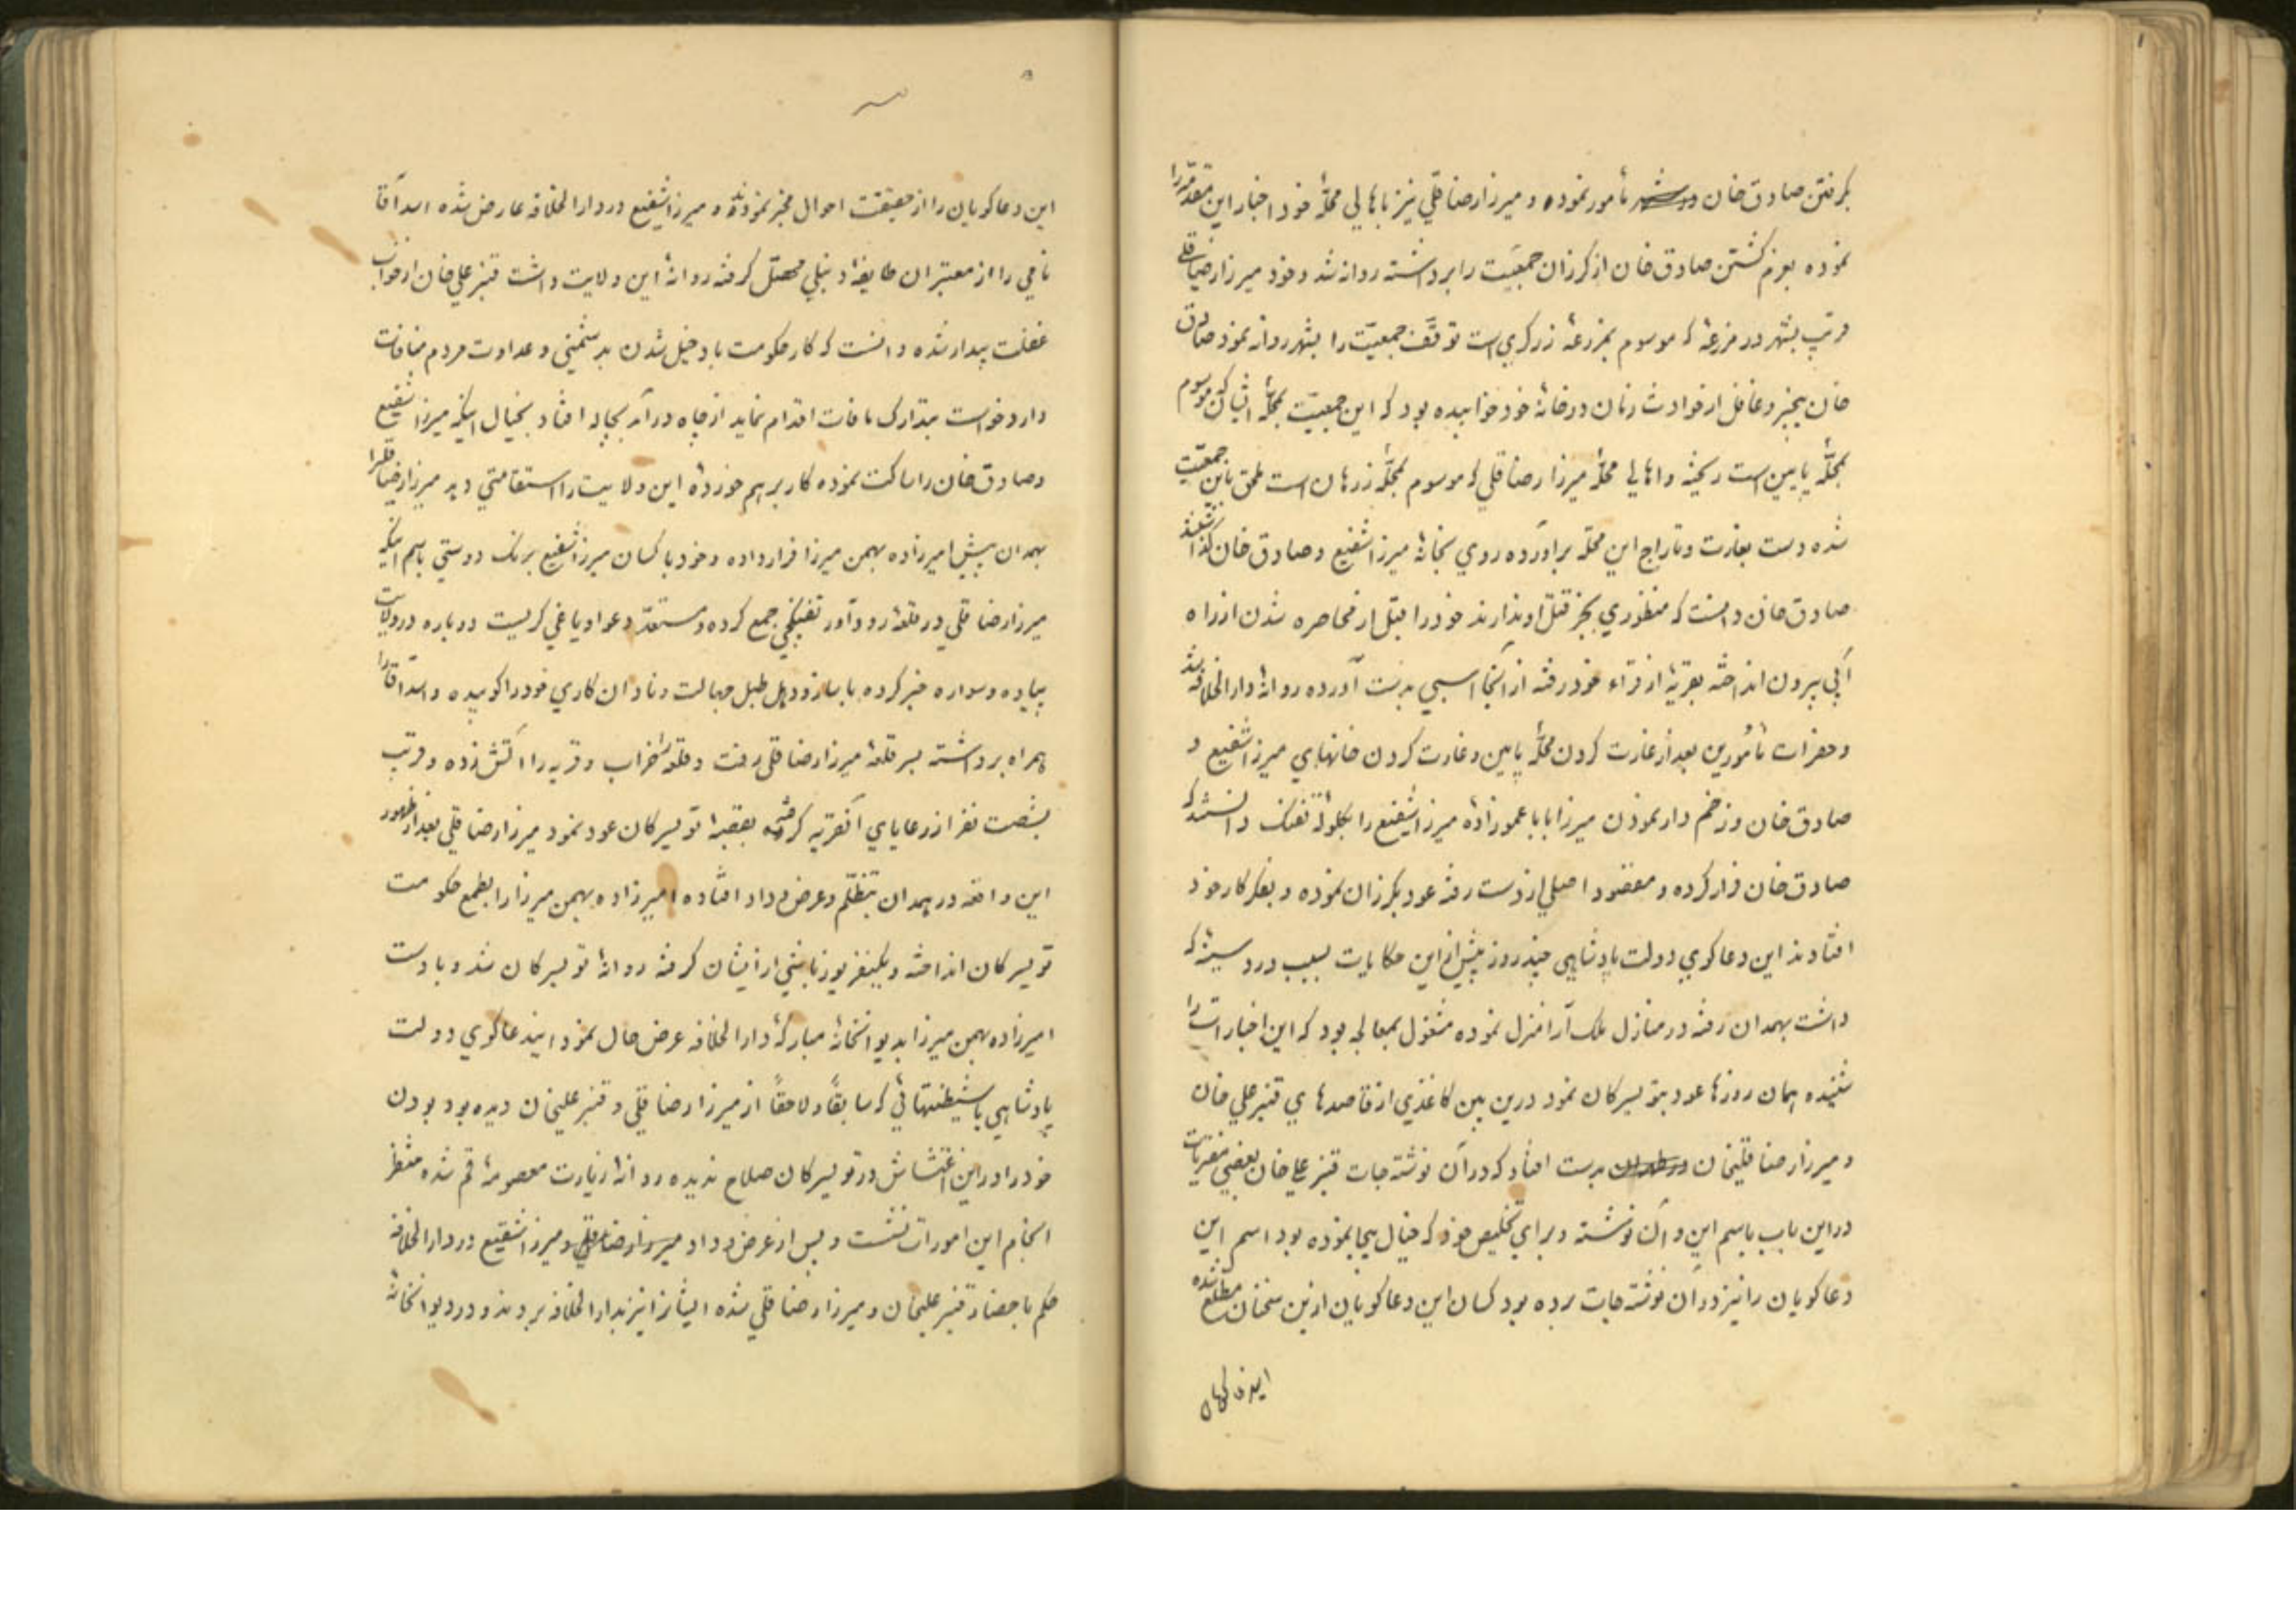 بگرفتن صادق خان در شهر مأمور نموده و میرزا رضا قلی نیز باهالی محلهٔ خود اخبار این مقدمه را
نموده بعزم کشتن صادق خان از کرزان جمعیت را برداشته روانه شد و خود میرزا رضا قلی
قریب بشهر در مزرعهٔ که موسوم بمزرعهٔ زرکری است توقف جمعیت را بشهر روانه نمود صادق
خان بیخبر و غافل از حوادث زمان در خانهٔ خود خوابیده بود که این جمعیت بمحلهٔ ایشان که موسوم
بمحلهٔ پایین است ریخته و اهالی محلهٔ میرزا رضا قلی که موسوم بمحلهٔ زرهان است ملحق باین جمعیت
شده دست بغارت و تاراج این محله برآورده روی بخانهٔ میرزا شفیع و صادق خان گذاشتند
صادق خان دانست که منظوری بجز قتل او ندارند خود را قبل از محاصره شدن از راه
آبی بیرون انداخته بقریهٔ از قراء خود رفته از آنجا اسبی بدست آورده روانهٔ دارالخلافه شد
و حضرات مأمورین بعد از غارت کردن محلهٔ پایین و غارت کردن خانهای میرزا شفیع و
صادق خان و زخم دار نمودن میرزا بابا عموزادهٔ میرزا شفیع را بگلولهٔ تفنک دانستند که
صادق خان فرار کرده و مقصود اصلی از دست رفته عود بکرزان نموده و بفکر کار خود
افتادند این دعاکوی دولت پادشاهی چند روز پیش از این حکایات بسبب درد سینهٔ که
داشت بهمدان رفته در منازل ملک آرا منزل نموده مشغول بمعالجه بود که این اخبارات را
شنیده همان روزها عود بتویسرکان نمود درین بین کاغذی از قاصدهای قنبر علی خان
و میرزا رضا قلیخان بدست افتاد که در آن نوشته جات قنبر علی خان بعضی مفتریات
در این باب باسم این و آن نوشته و برای تخلیص خود که خیال بیجا نموده بود اسم این
دعاکویان را نیز در آن نوشته جات برده بود کسان این دعاکویان ازین سخنان مطلع شده
این دعاکویان را از حقیقت احوال مخبر نمودند و میرزا شفیع در دارالخلافه عارض شده اسد آقا
نامی را از معتبران طایفهٔ دنبلی محصل کرفته روانهٔ این ولایت داشت قنبر علی خان از خواب
غفلت بیدار شده دانست که کار حکومت با دخیل شدن بدشمنی و عداوت مردم منافات
دارد خواست بتدارک مافات اقدام نماید از چاه درآمد بچاله افتاد بخیال اینکه میرزا شفیع
و صادق خان را ساکت نموده کار برهم خوردهٔ این ولایت را استقامتی دهد میرزا رضا قلی را
بهمدان پیش امیرزاده بهمن میرزا فرار داده و خود با کسان میرزا شفیع برنک دوستی باسم اینکه
میرزا رضا قلی در قلعهٔ رودآور تفنکچی جمع کرده و مستعد دعوا و یاغی کریست دوباره در ولایت
پیاده و سواره خبر کرده با ساز و دهل طبل جهالت و نادان کاری خود را کوبیده و اسد آقا را
همراه برداشته بسر قلعهٔ میرزا رضا قلی رفت و قلعه را خراب و قریه را آتش زده و قریب
بشصت نفر از رعایای آنقریه کرفته بقصبهٔ تویسرکان عود نمود میرزا رضا قلی بعد از ظهور
این واقعه در همدان بتظلم و عرض و داد افتاده امیرزاده بهمن میرزا را بطمع حکومت
تویسرکان انداخته و یکنفر یوزباشی از ایشان کرفته روانهٔ تویسرکان شد و با دست
امیرزاده بهمن میرزا بدیوانخانهٔ مبارکهٔ دارالخلافه عرض حال نمود ایندعاکوی دولت
پادشاهی با شیطنتهائی که سابقاً و لاحقاً از میرزا رضا قلی و قنبر علیخان دیده بود بودن
خود را در این اغتشاش در تویسرکان صلاح ندیده روانهٔ زیارت معصومهٔ قم شده منتظر
انجام این امورات نشست و پس از عرض و داد میرزا رضا قلی و میرزا شفیع در دارالخلافه
حکم باحضار قنبر علیخان و میرزا رضا قلی شده ایشانرا نیز بدارالخلافه بردند و در دیوانخانهٔ